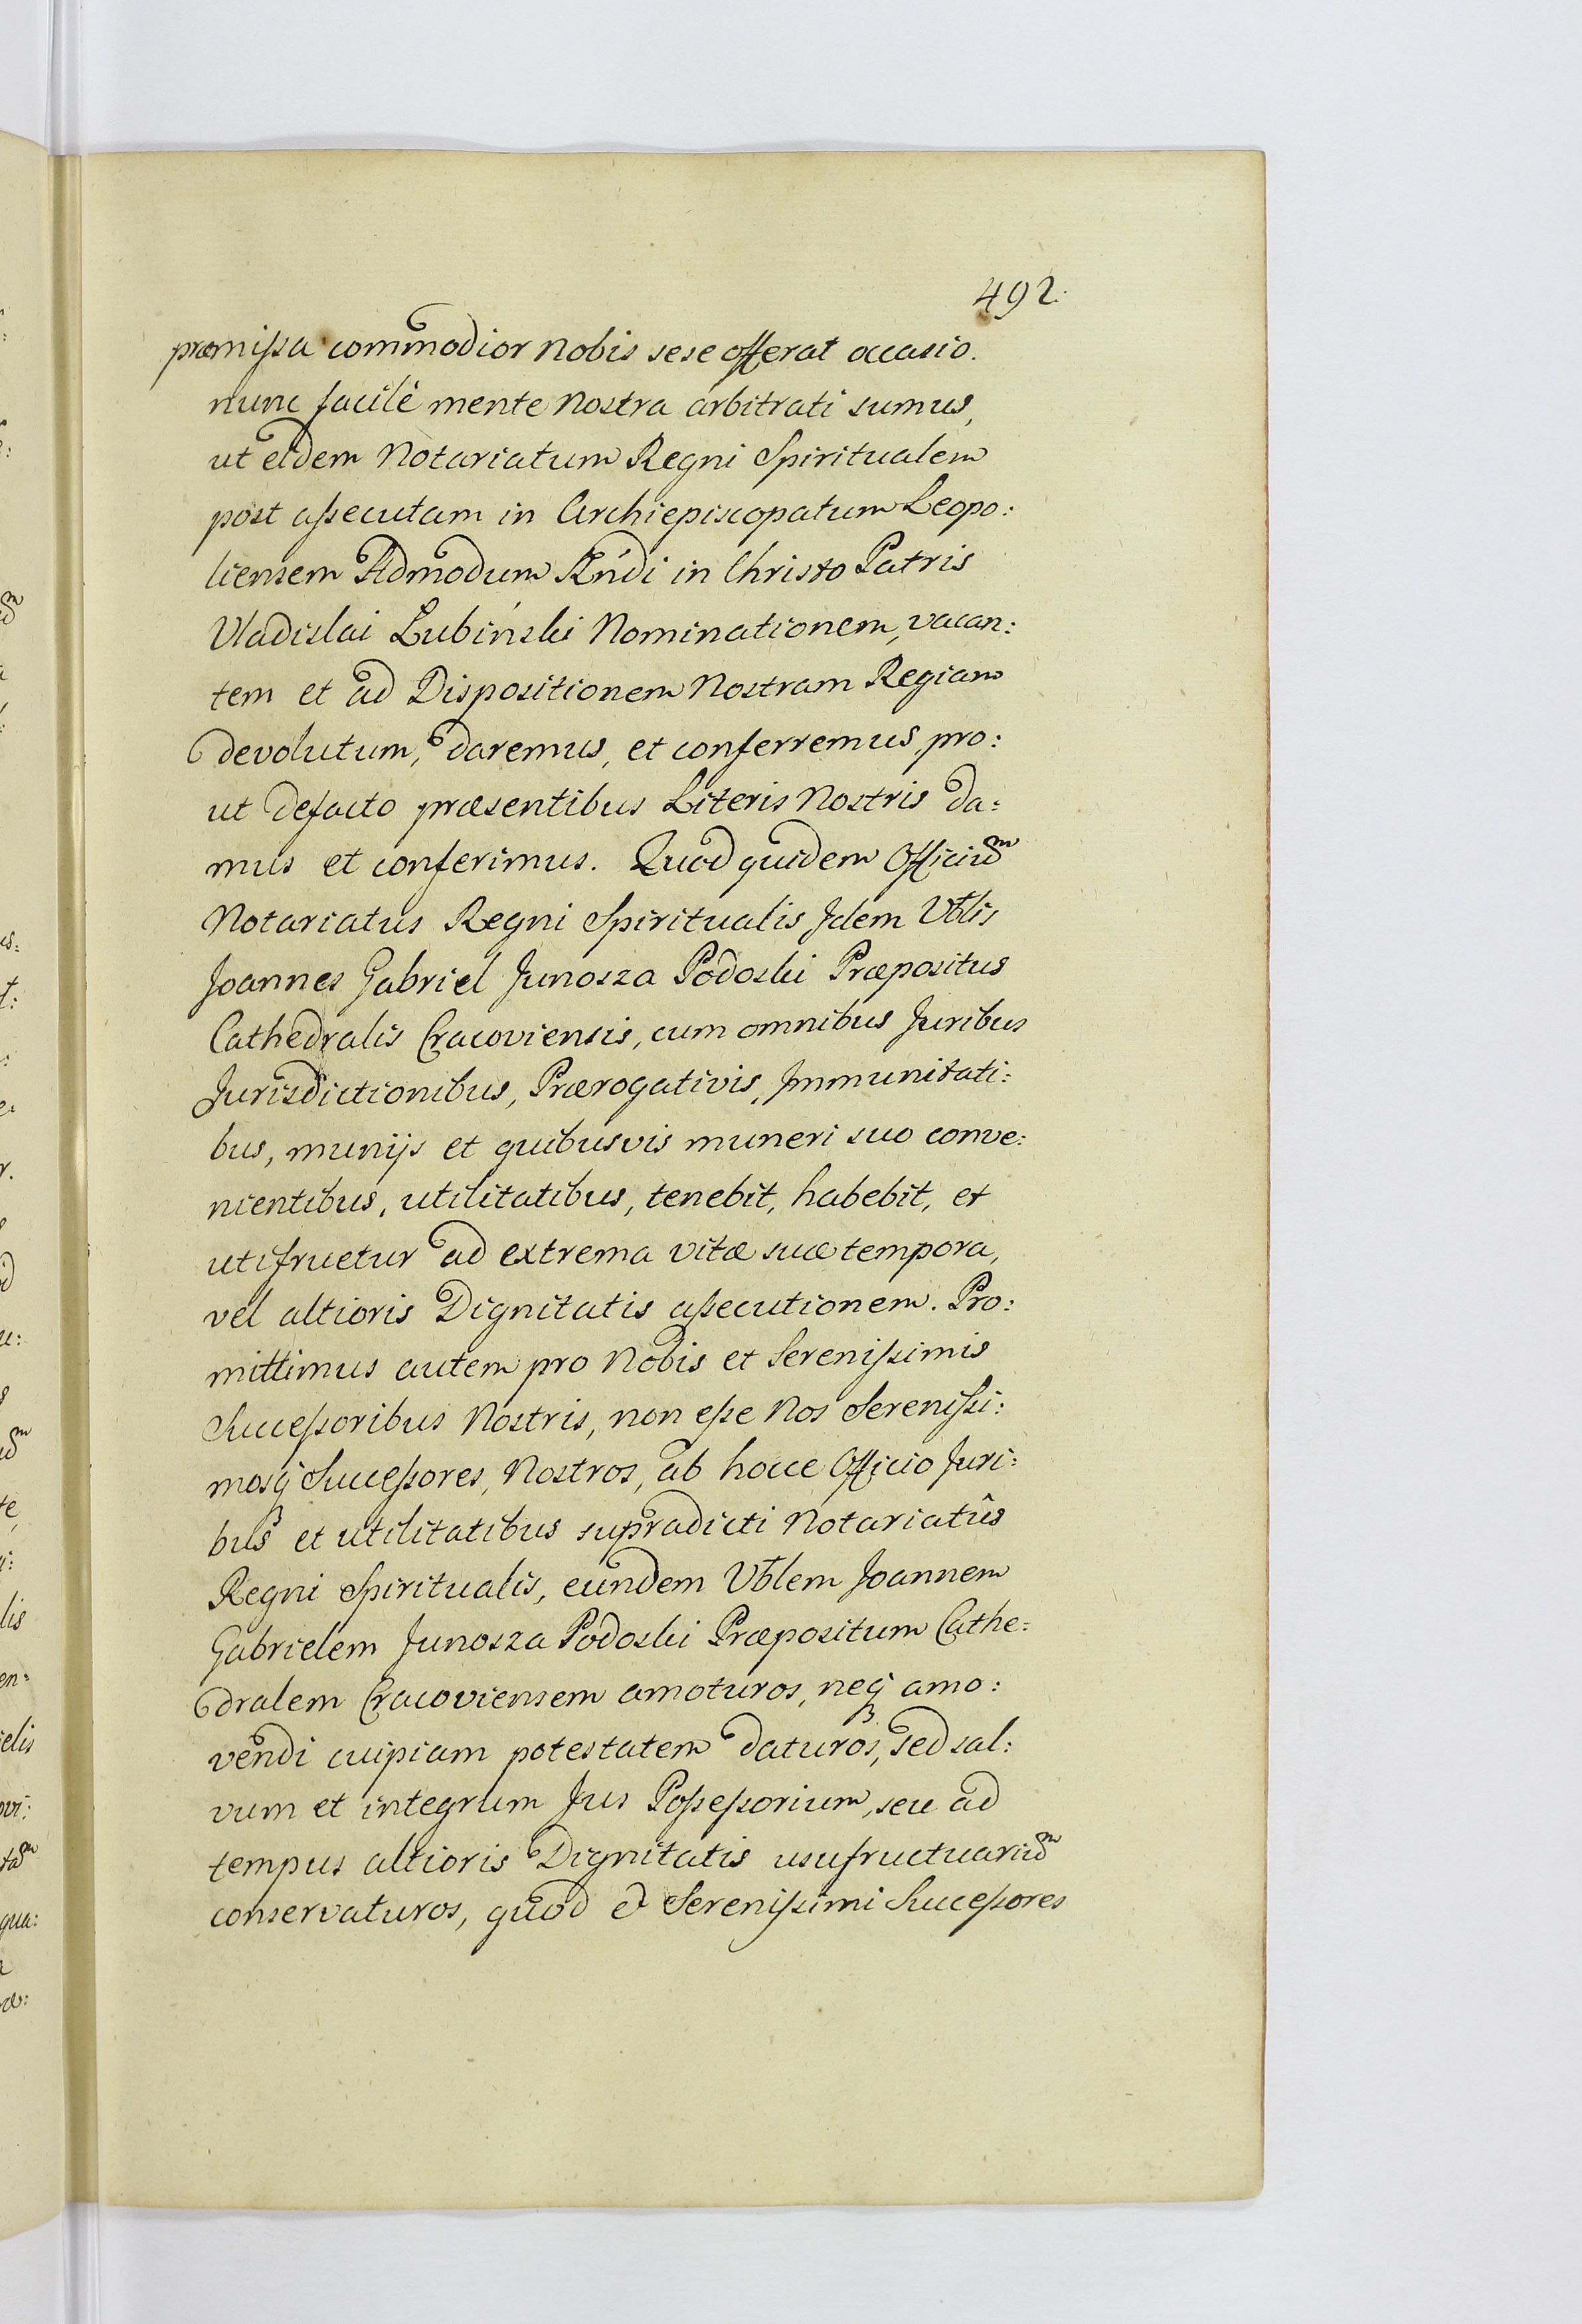 492.
præmissa commodior Nobis sese offerat occasio.
nunc facilè mente Nostra arbitrati sumus,
ut eidem Notariatum Regni Spiritualem
post assecutam in Archiepiscopatum Leopo:
liensem Admodum Rńdi in Christo Patris
Vladislai Łubiński Nominationem, vacan:
tem et ad Dispositionem Nostram Regiam
devolutum, daremus, et conferremus, pro:
ut defacto præsentibus Literis Nostris da:
mus et conferimus. Quod quidem Officium
Notariatus Regni Spiritualis Idem Vblis
Joannes Gabriel Junosza Podoski Præpositus
Cathedralis Cracoviensis, cum omnibus Juribus
Jurisdictionibus, Prærogativis, Immunitati:
bus, munijs et quibusvis muneri suo conve:
nientibus, utilitatibus, tenebit, habebit, et
utifruetur ad extrema vitæ suæ tempora,
vel altioris Dignitatis assecutionem. Pro:
mittimus autem pro Nobis et Serenissimis
Successoribus Nostris, non esse Nos Serenissi:
mosq Successores, Nostros, ab hocce Officio Juri:
bus et utilitatibus supradicti Notariatûs
Regni Spiritualis, eundem Vblem Joannem
Gabrielem Junosza Podoski Præpositum Cathe:
dralem Cracoviensem amoturos, neq amo:
vendi cuipiam potestatem daturos, sed sal:
vum et integrum Jus Possessorium, seu ad
tempus altioris Dignitatis usufructuarium
conservaturos, quod & Serenissimi Successores